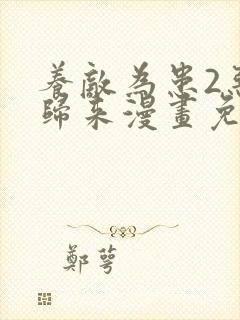 養敵為患2
歸來漫畫免
鄭萼